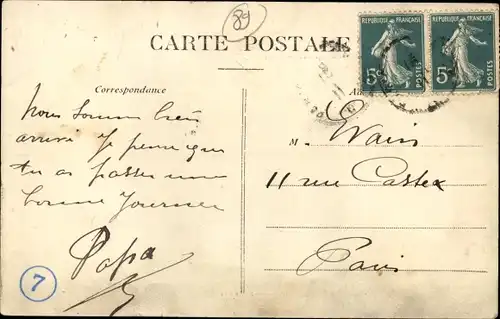 89
CARTE POSTALE
REPUBLIQUE FRANÇAISE
5c
POSTES
REPUBLIQUE FRANÇAISE
5c
POSTES
Correspondance
Nous sommes bien
arrivé Je pense que
tu as passer une
bonne Journée
Papa
7
M.
11 rue Castex
Paris